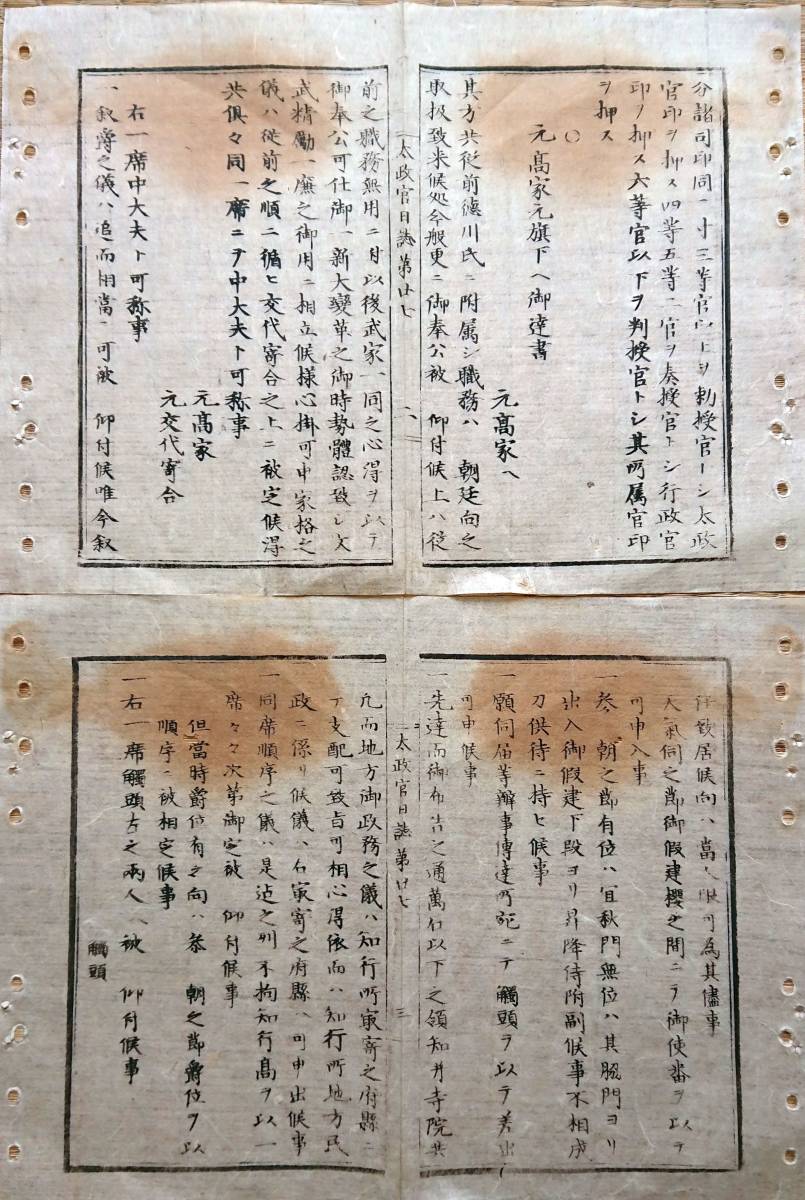 分諸司印同一寸三等官以上ヲ勅授官トシ太政
官印ヲ押ス四等五等二官ヲ奏授官トシ行政官
印ヲ押ス六等官以下ヲ判授官トシ其所属官印
ヲ押ス
○
元高家元旗下ヘ御達書
元高家ヘ
其方共従前徳川氏ニ附属シ職務ハ 朝廷向之
取扱致来候処今般更ニ御奉公被 仰付候上ハ従
太政官日誌第廿七 二
前之職務無用ニ付以後武家一同之心得ヲ以テ
御奉公可仕御一新大變革之御時勢體認致シ文
武精勵一廉之御用ニ相立候様心掛可申家格之
儀ハ従前之順ニ循ヒ交代寄合之上ニ被定候得
共倶々同一席ニテ中大夫ト可称事
元高家
元交代寄合
右一席中大夫ト可称事
一叙爵之儀ハ追而相當ニ可被 仰付候唯今叙
任致居候向ハ當人限可為其儘事
天氣伺之節御假建櫻之間ニテ御使番ヲ以テ
可申入事
一参 朝之節有位ハ宜秋門無位ハ其脇門ヨリ
出入御假建下段ヨリ昇降侍附副候事不相成
刀供待ニ持セ候事
一願伺届等辦事傳達所宛ニテ觸頭ヲ以テ差出
可申候事
一先達而御布告之通萬石以下之領知并寺院共
太政官日誌第廿七 三
凡而地方御政務之儀ハ知行所最寄之府縣ニ
テ支配可致旨可相心得依而ハ知行所地方民
政ニ係リ候儀ハ右最寄之府縣ヘ可申出候事
一同席順序之儀ハ是迠之列不拘知行高ヲ以一
席々々次第御定被 仰付候事
但當時爵位有之向ハ参 朝之節爵位ヲ以
順序ニ被相定候事
一右一席觸頭左之兩人ヘ被 仰付候事
觸頭